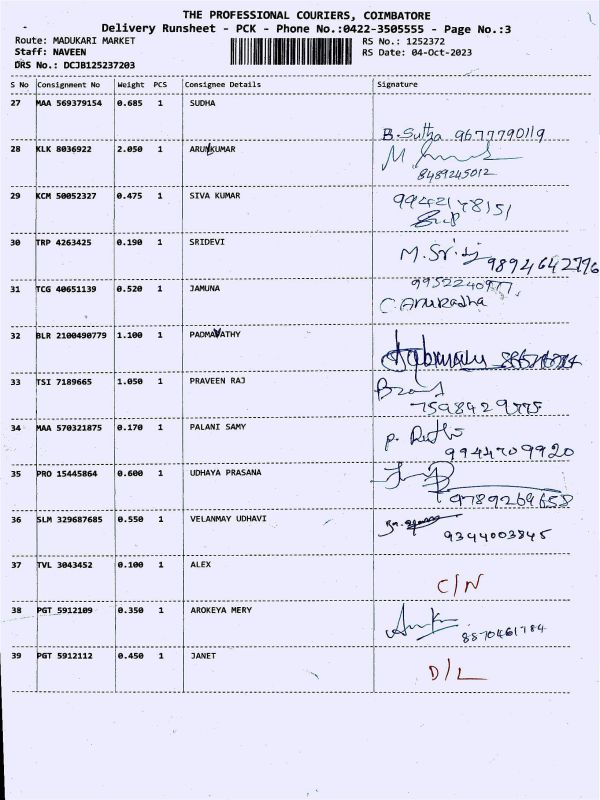 THE PROFESSIONAL COURIERS, COIMBATORE
Delivery Runsheet - PCK - Phone No.:0422-3505555 - Page No.:3
Route: MADUKARI MARKET RS No.: 1252372
Staff: NAVEEN RS Date: 04-Oct-2023
DRS No.: DCJB125237203
S No Consignment No Weight PCS Consignee Details Signature
27 MAA 569379154 0.685 1 SUDHA
B. Sutha 9677790119
28 KLK 8036922 2.050 1 ARUNKUMAR
8489245012
29 KCM 50052327 0.475 1 SIVA KUMAR
9942178151
30 TRP 4263425 0.190 1 SRIDEVI
9894642796
31 TCG 40651139 0.520 1 JAMUNA
C. Anuradha
32 BLR 2100490779 1.100 1 PADMAVATHY
33 TSI 7189665 1.050 1 PRAVEEN RAJ
34 MAA 570321875 0.170 1 PALANI SAMY
9944709920
35 PRO 15445864 0.600 1 UDHAYA PRASANA
9789269658
36 SLM 329687685 0.550 1 VELANMAY UDHAVI
9344003845
37 TVL 3043452 0.100 1 ALEX
C/N
38 PGT 5912109 0.350 1 AROKEYA MERY
8870461784
39 PGT 5912112 0.450 1 JANET
D/L